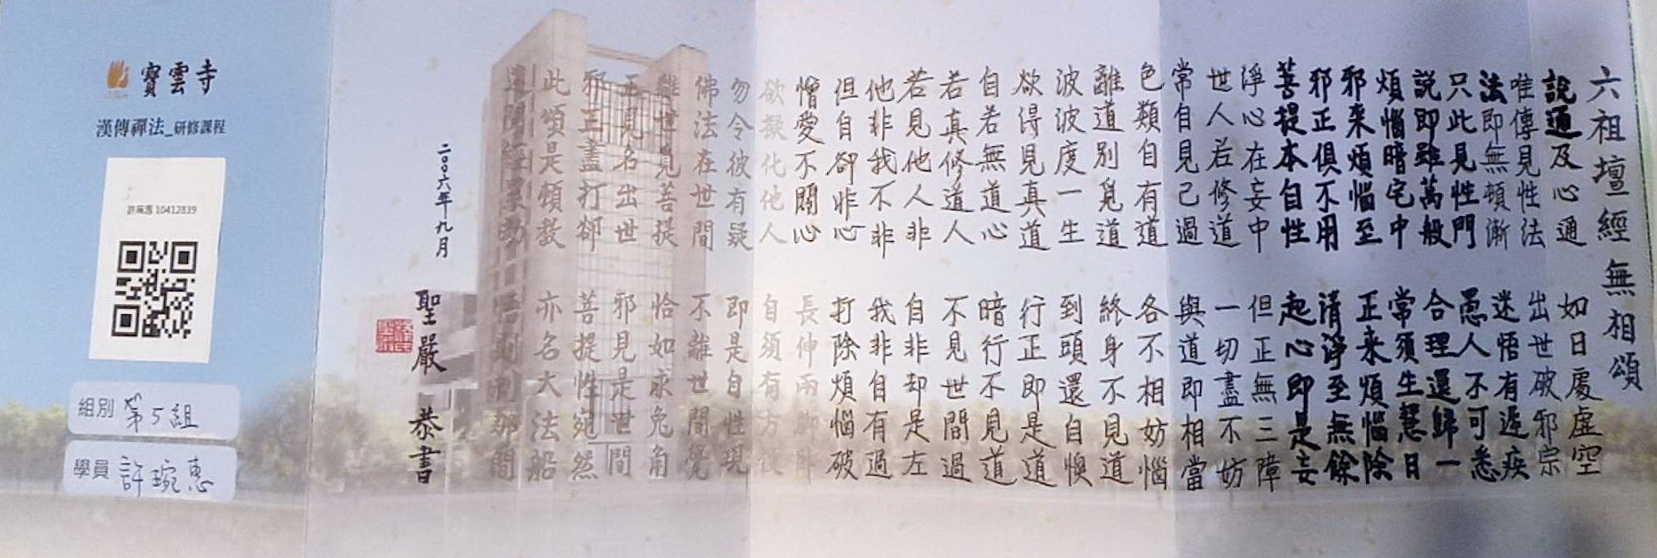 六祖壇經 無相頌
說通及心通 如日處虛空
唯傳見性法 出世破邪宗
法即無頓漸 迷悟有遲疾
只此見性門 愚人不可悉
說即雖萬般 合理還歸一
煩惱暗宅中 常須生慧日
邪來煩惱至 正來煩惱除
邪正俱不用 清淨至無餘
菩提本自性 起心即是妄
淨心在妄中 但正無三障
世人若修道 一切盡不妨
常自見己過 與道即相當
色類自有道 各不相妨惱
離道別覓道 終身不見道
波波度一生 到頭還自懊
欲得見真道 行正即是道
自若無道心 暗行不見道
若真修道人 不見世間過
若見他人非 自非却是左
他非我不非 我非自有過
但自卻非心 打除煩惱破
憎愛不關心 長伸兩腳臥
欲擬化他人 自須有方便
勿令彼有疑 即是自性現
佛法在世間 不離世間覺
離世覓菩提 恰如求兔角
正見名出世 邪見是世間
邪正盡打卻 菩提性宛然
此頌是頓教 亦名大法船
迷聞經累劫 悟則剎那間
二〇〇六年九月
聖嚴 恭書
寶雲寺
漢傳禪法_研修課程
許琬惠 10412839
組別 第5組
學員 許琬惠